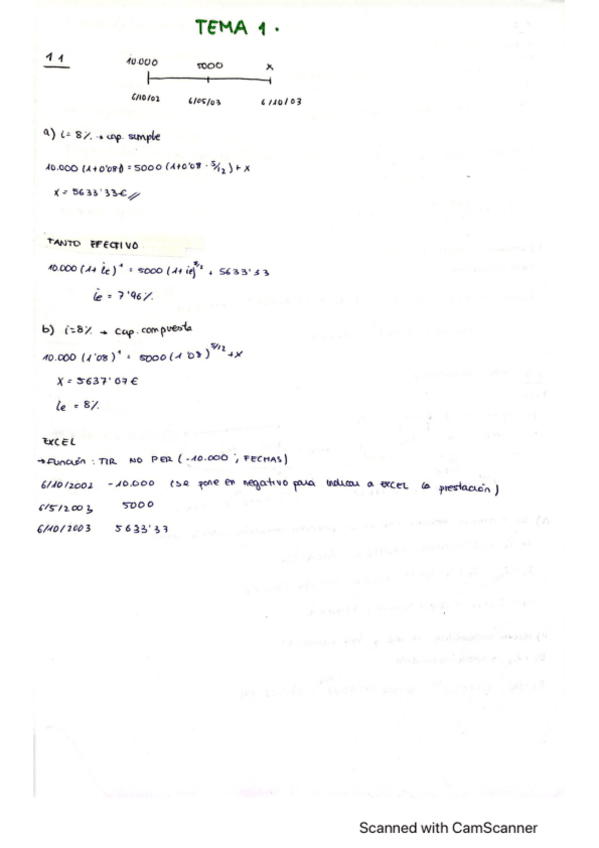 TEMA 1.
1 1
10.000 5000 x
6/10/02 6/05/03 6/10/03
a) i = 8% → cap. simple
10.000 (1+0'08) = 5000 (1+0'08 · 5/12) + x
x = 5633'33€ //
TANTO EFECTIVO
10.000 (1+ ie)¹ = 5000 (1+ ie)^5/12 + 5633'33
ie = 7'96%
b) i=8% → cap. compuesta
10.000 (1'08)¹ = 5000 (1'08)^5/12 + x
x = 5637'07 €
ie = 8%
EXCEL
→ Función: TIR NO PER (-10.000 ; FECHAS)
6/10/2002 -10.000 (se pone en negativo para indicar a excel la prestación)
6/5/2003 5000
6/10/2003 5633'33
Scanned with CamScanner